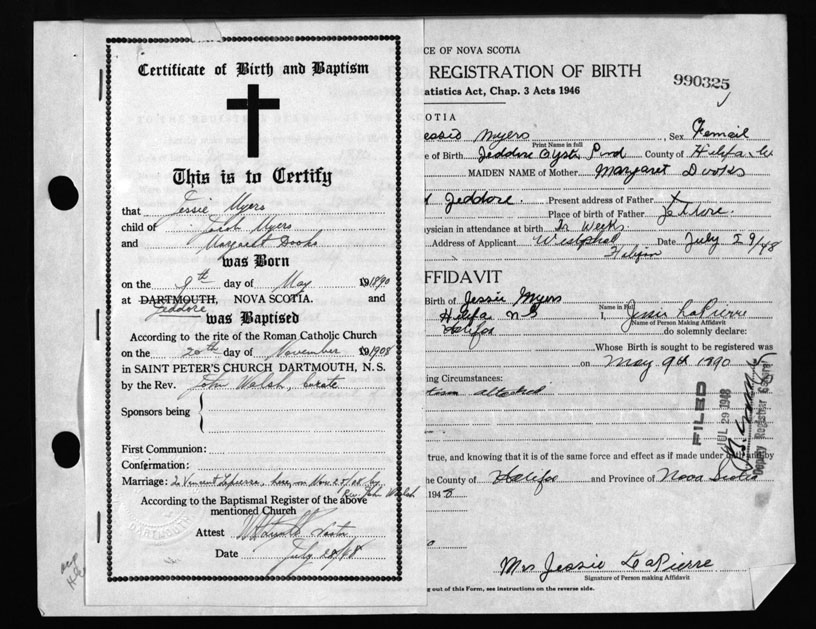 Certificate of Birth and Baptism
This is to Certify
that Jessie Myers
child of Jacob Myers
and Margaret Dooks
was Born
on the 9th day of May 1890
at DARTMOUTH, NOVA SCOTIA. and
Jeddore
was Baptised
According to the rite of the Roman Catholic Church
on the 20th day of November 1908
in SAINT PETER'S CHURCH DARTMOUTH, N. S.
by the Rev. John Walsh, curate
Sponsors being
First Communion:
Confermation:
Marriage: To Vincent Lapierre, here, on Nov 28/08 by
Rev. John Walsh
According to the Baptismal Register of the above
mentioned Church
Attest
Date July 28/48
DARTMOUTH
CE OF NOVA SCOTIA
REGISTRATION OF BIRTH
990325
tatistics Act, Chap. 3 Acts 1946
OTIA
essie Myers, Sex Femail
Print Name in full
e of Birth Jeddore Oyster Pond County of Halifax
MAIDEN NAME of Mother Margaret Dooks
d Jeddore. Present address of Father
Place of birth of Father Jeddore.
ysician in attendance at birth
Address of Applicant Westphal Date July 29/48
Halifax
FFIDAVIT
Birth of Jessie Myers
Halifa N S I, Jessie LaPierre
Name in Full
Name of Person Making Affidavit
Halifax do solemnly declare:
Whose Birth is sought to be registered was
on May 9th 1890
ing Circumstances:
attached
FILED
JUL 29 1948
Deputy Registrar General
true, and knowing that it is of the same force and effect as if made under oath and by
he County of Halifax and Province of Nova Scotia
1948
Mrs Jessie LaPierre
Signature of Person making Affidavit
ng out of this Form, see instructions on the reverse side.